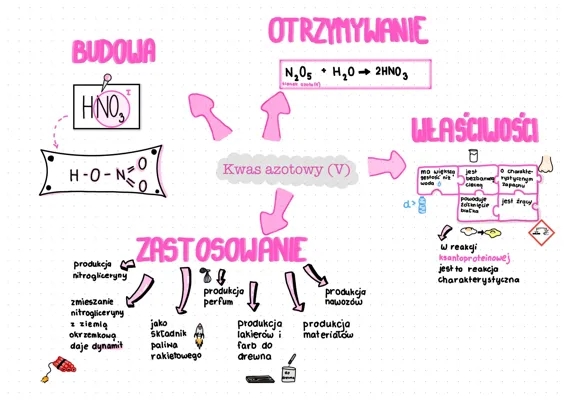 OTRZYMYWANIE
N2O5 + H2O → 2HNO3
BUDOWA
HNO3
I
H-O-N
O
O
Kwas azotowy (V)
WŁAŚCIWOŚCI
ma większą
gęstość niż
woda
jest
bezbarwną
cieczą
o charakte-
rystycznym
zapachu
powoduje
żółknięcie
białka
jest żrący
d>
w reakcji
ksantoproteinowej
jest to reakcja
charakterystyczna
ZASTOSOWANIE
produkcja
nitrogliceryny
zmieszanie
nitrogliceryny
z ziemią
okrzemkową
daje dynamit
jako
składnik
paliwa
rakietowego
produkcja
perfum
produkcja
lakierów i
farb do
drewna
produkcja
nawozów
produkcja
materiałów